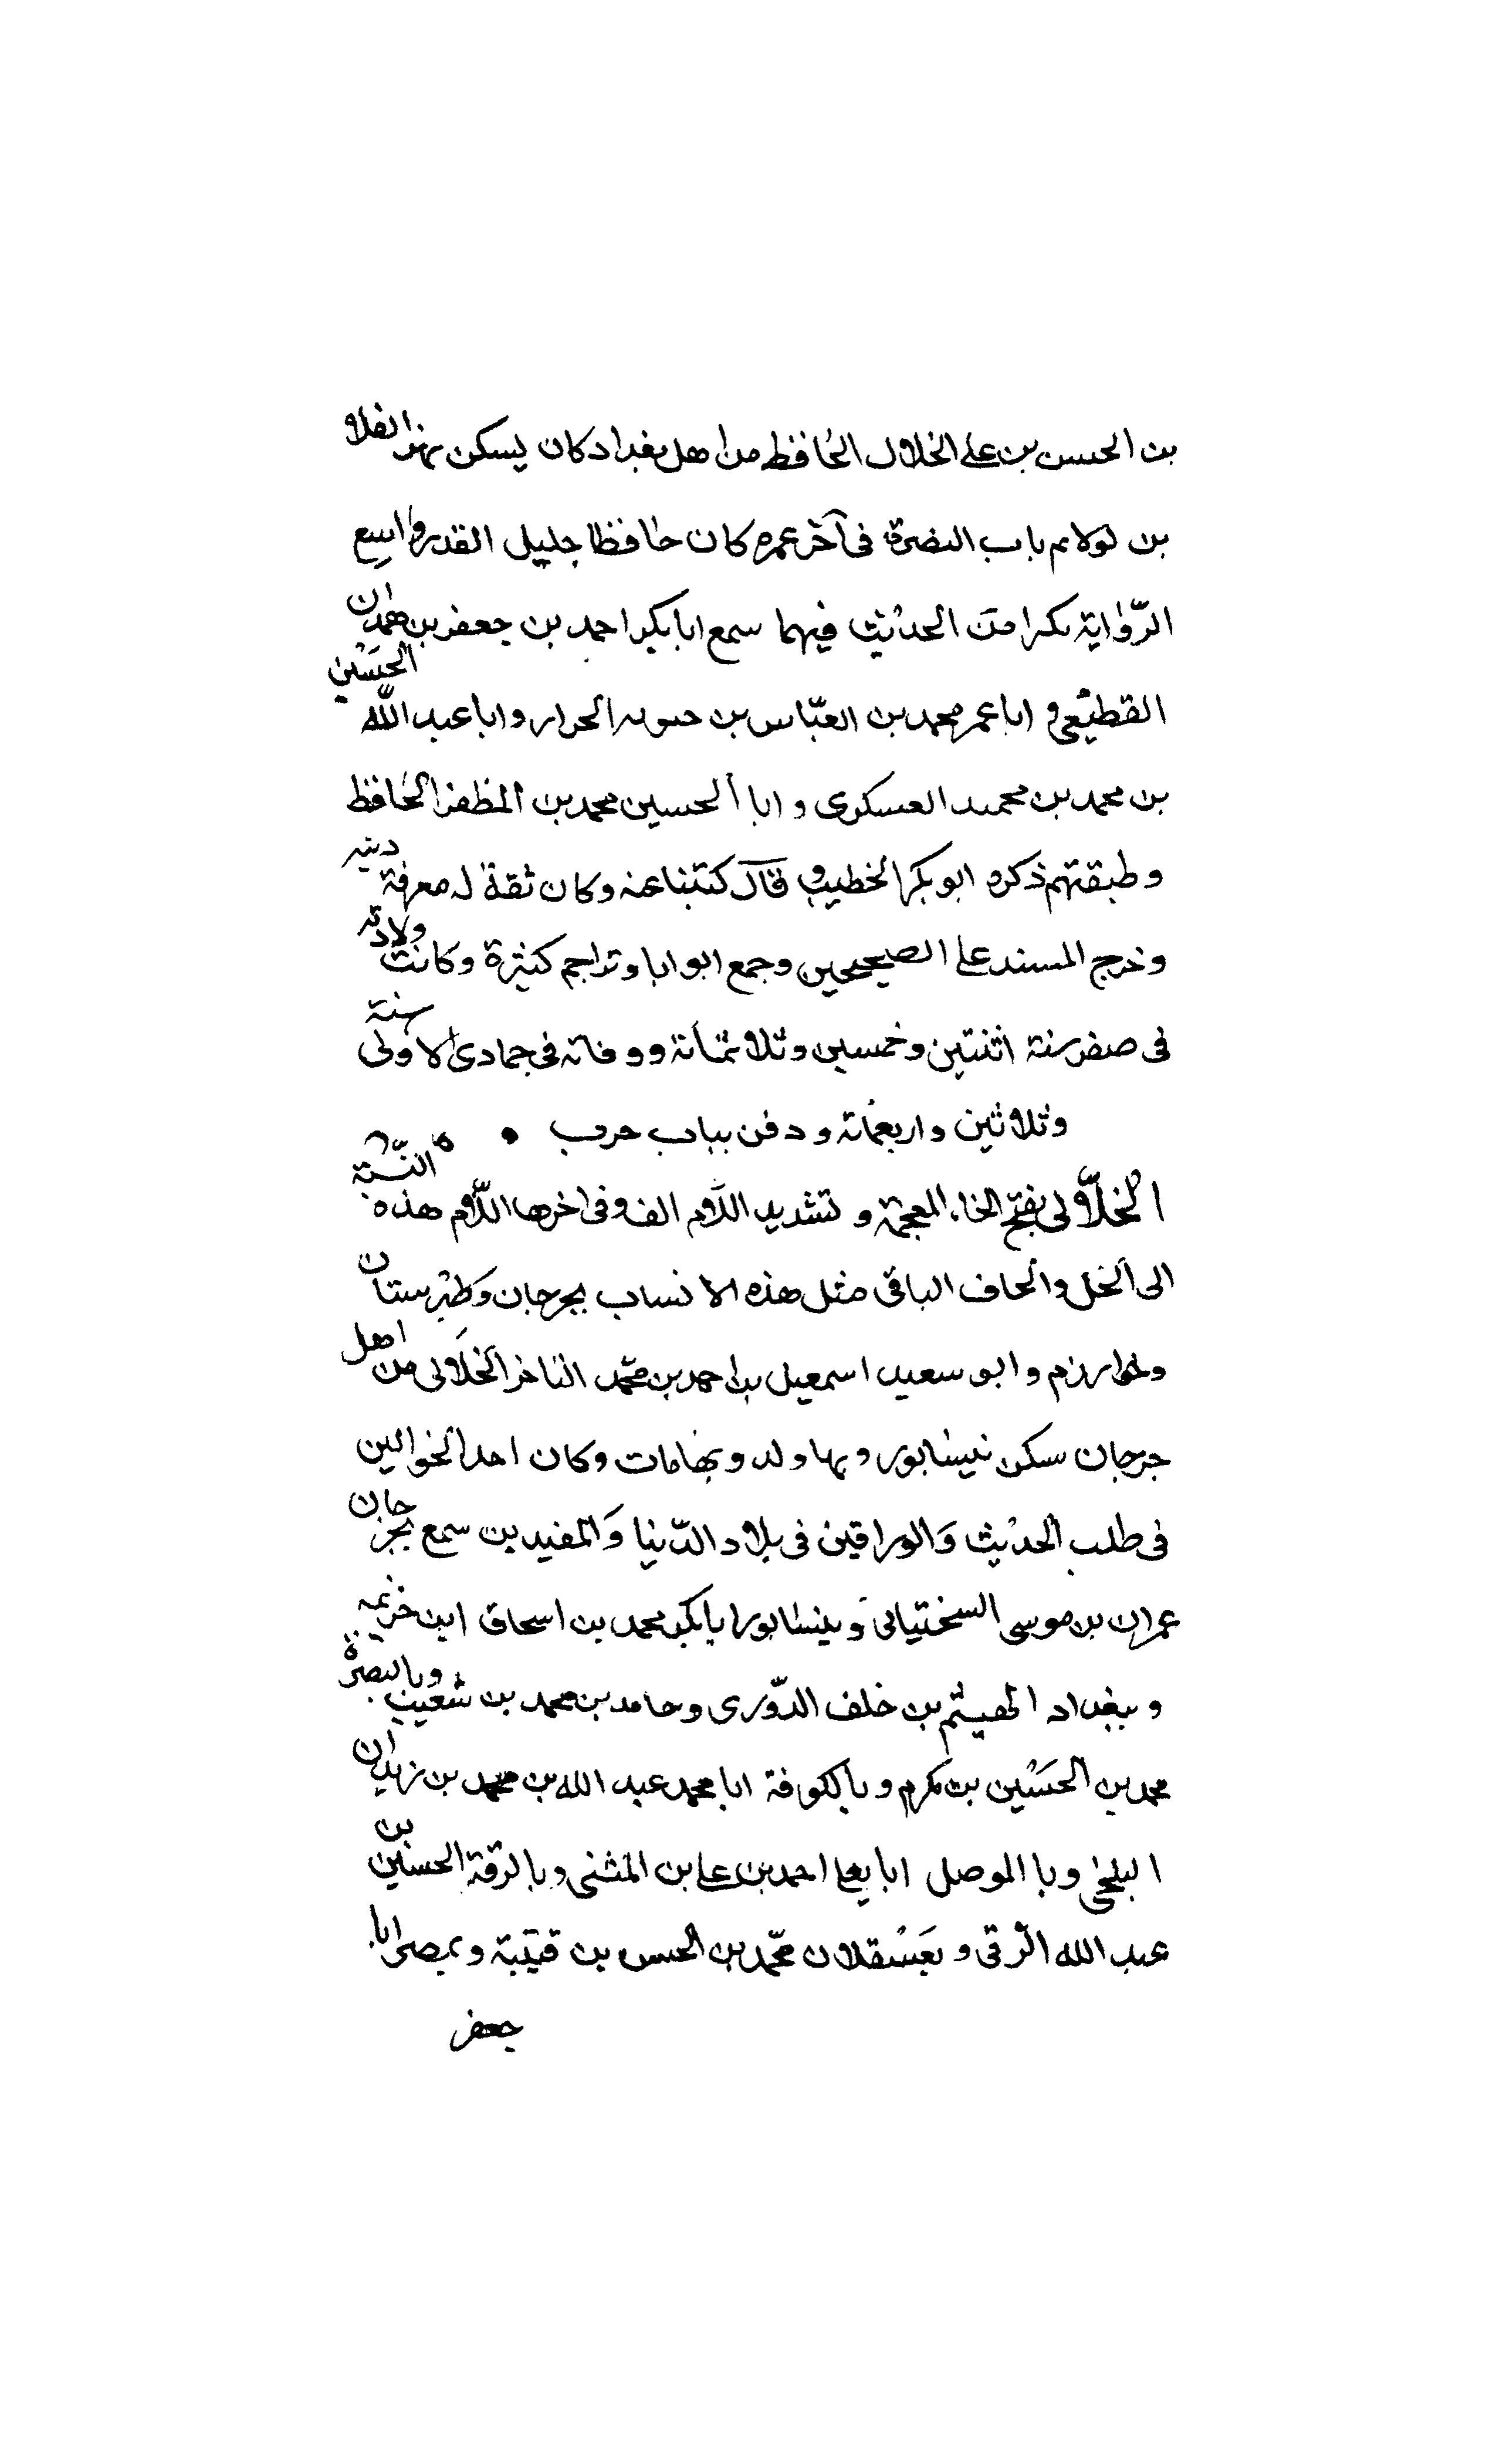 بن الحسن بن علي الخلال الحافظ من اهل بغداد كان يسكن بنهر القلا
بن لولا ثم باب البصرة في آخر عمره كان حافظا جليل القدر واسع
الرّواية مكثرا من الحديث فيهما سمع ابا بكر احمد بن جعفر بن حمدان
القطيعي و ابا عمر محمد بن العبّاس بن حيويه الخزاز و ابا عبد الله الحسَين
بن محمد بن محمد العسكري و ابا الحسين محمد بن المظفر الحافظ
و طبقتهم ذكره ابو بكر الخطيب و قال كتبنا عنه وكان ثقة له معرفة دنيه
وخرج المسند على الصحيحين وجمع ابوابا وتراجم كثيرة وكانت ولادته
في صفر سنة اثنتين وخمسين وثلاثمائة ووفاته في جمادى الاولى سنة
وثلاثين واربعمائة ودفن بباب حرب
الخلاّلي بفتح الخاء المعجمة و تشديد اللّام الف وفي اخرها اللّام هذه النّسبة
الى الخل والحاف الباقي مثل هذه الانساب بجرجان وطبرستان
وخوارزم وابو سعيد اسمعيل بن احمد بن محمّد التاجر الخلالي من اهل
جرجان سكن نيسابور وبها ولد وبها مات وكان احد الجوالين
في طلب الحديث والوراقين في بلاد الدّنيا والمفيدين سمع بجرجان
عمران بن موسى السختياني وبنيسابور ابا بكر محمد بن اسحاق ابن خزيمة
وببغداد الهيثم بن خلف الدّوري وحامد بن محمد بن شعيب وبالبصرة
محمد بن الحسَين بن مكرم وبالكوفة ابا محمد عبد الله بن محمد بن زيدان
البلخي وبا الموصل ابا يعلى احمد بن علي بن المثنى وبالرقة الحسين بن
عبد الله الرقي و بعَسقلان محمّد بن الحسن بن قتيبة وبمصر ابا
جعفر